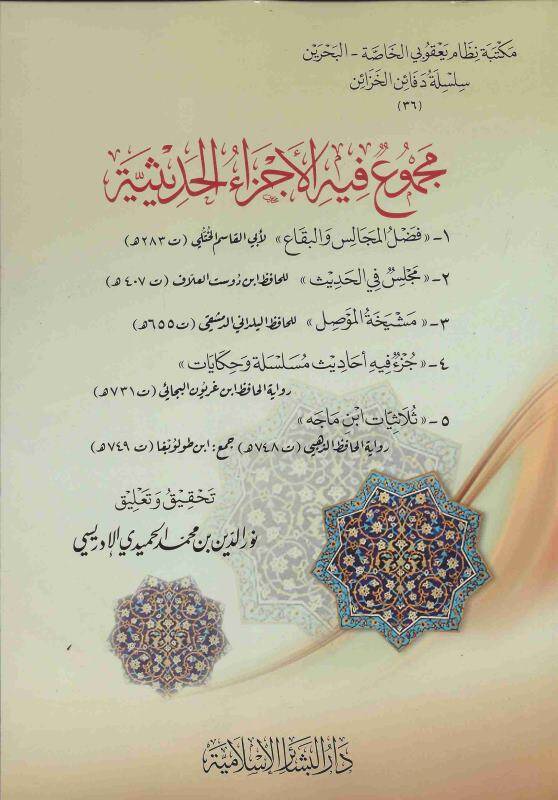 مَكتبَة نِظَام يَعقوبي الخَاصَّة - البَحرَين
سِلسِلَة دَفَائِن الخَزَائِن
(٣٦)
مَجْمُوعٌ فِيهِ الأَجْزَاءُ الحَدِيثِيَّة
١- «فَضْلُ المَجَالِسِ وَالبِقَاع» لأبي القاسم الختلي (ت ٢٨٣هـ)
٢- «مَجْلِسٌ فِي الحَدِيث» للحافظ ابن دُوست العلّاف (ت ٤٠٧هـ)
٣- «مَشْيَخَةُ المَوْصِل» للحافظ اليلداني الدمشقي (ت ٦٥٥هـ)
٤- «جُزْءٌ فِيهِ أَحَادِيثُ مُسَلْسَلَة وَحِكَايَات»
رواية الحافظ ابن غريون البجائي (ت ٧٣١هـ)
٥- «ثُلَاثِيَّات ابْنِ مَاجَه»
رواية الحافظ الذهبي (ت ٧٤٨هـ) جمع: ابن طولوبغا (ت ٧٤٩هـ)
تَحْقِيقُ وَتَعْلِيق
نور الدين بن محمد الحميدي الإدريسي
دَارُ البَشَائِرِ الإِسْلَامِيَّة